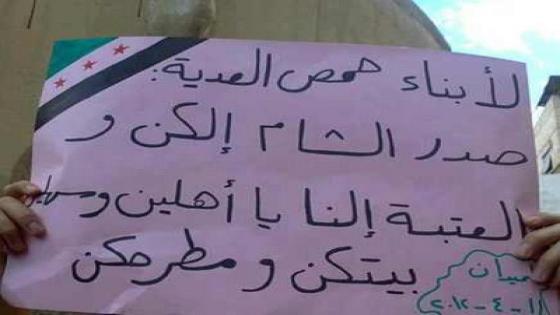 لأبناء حمص العدية:
صدر الشام إلكن و
العتبة إلنا يا أهلين وسهلين
بيتكن ومطرحكن
١١-٤-٢٠١٢